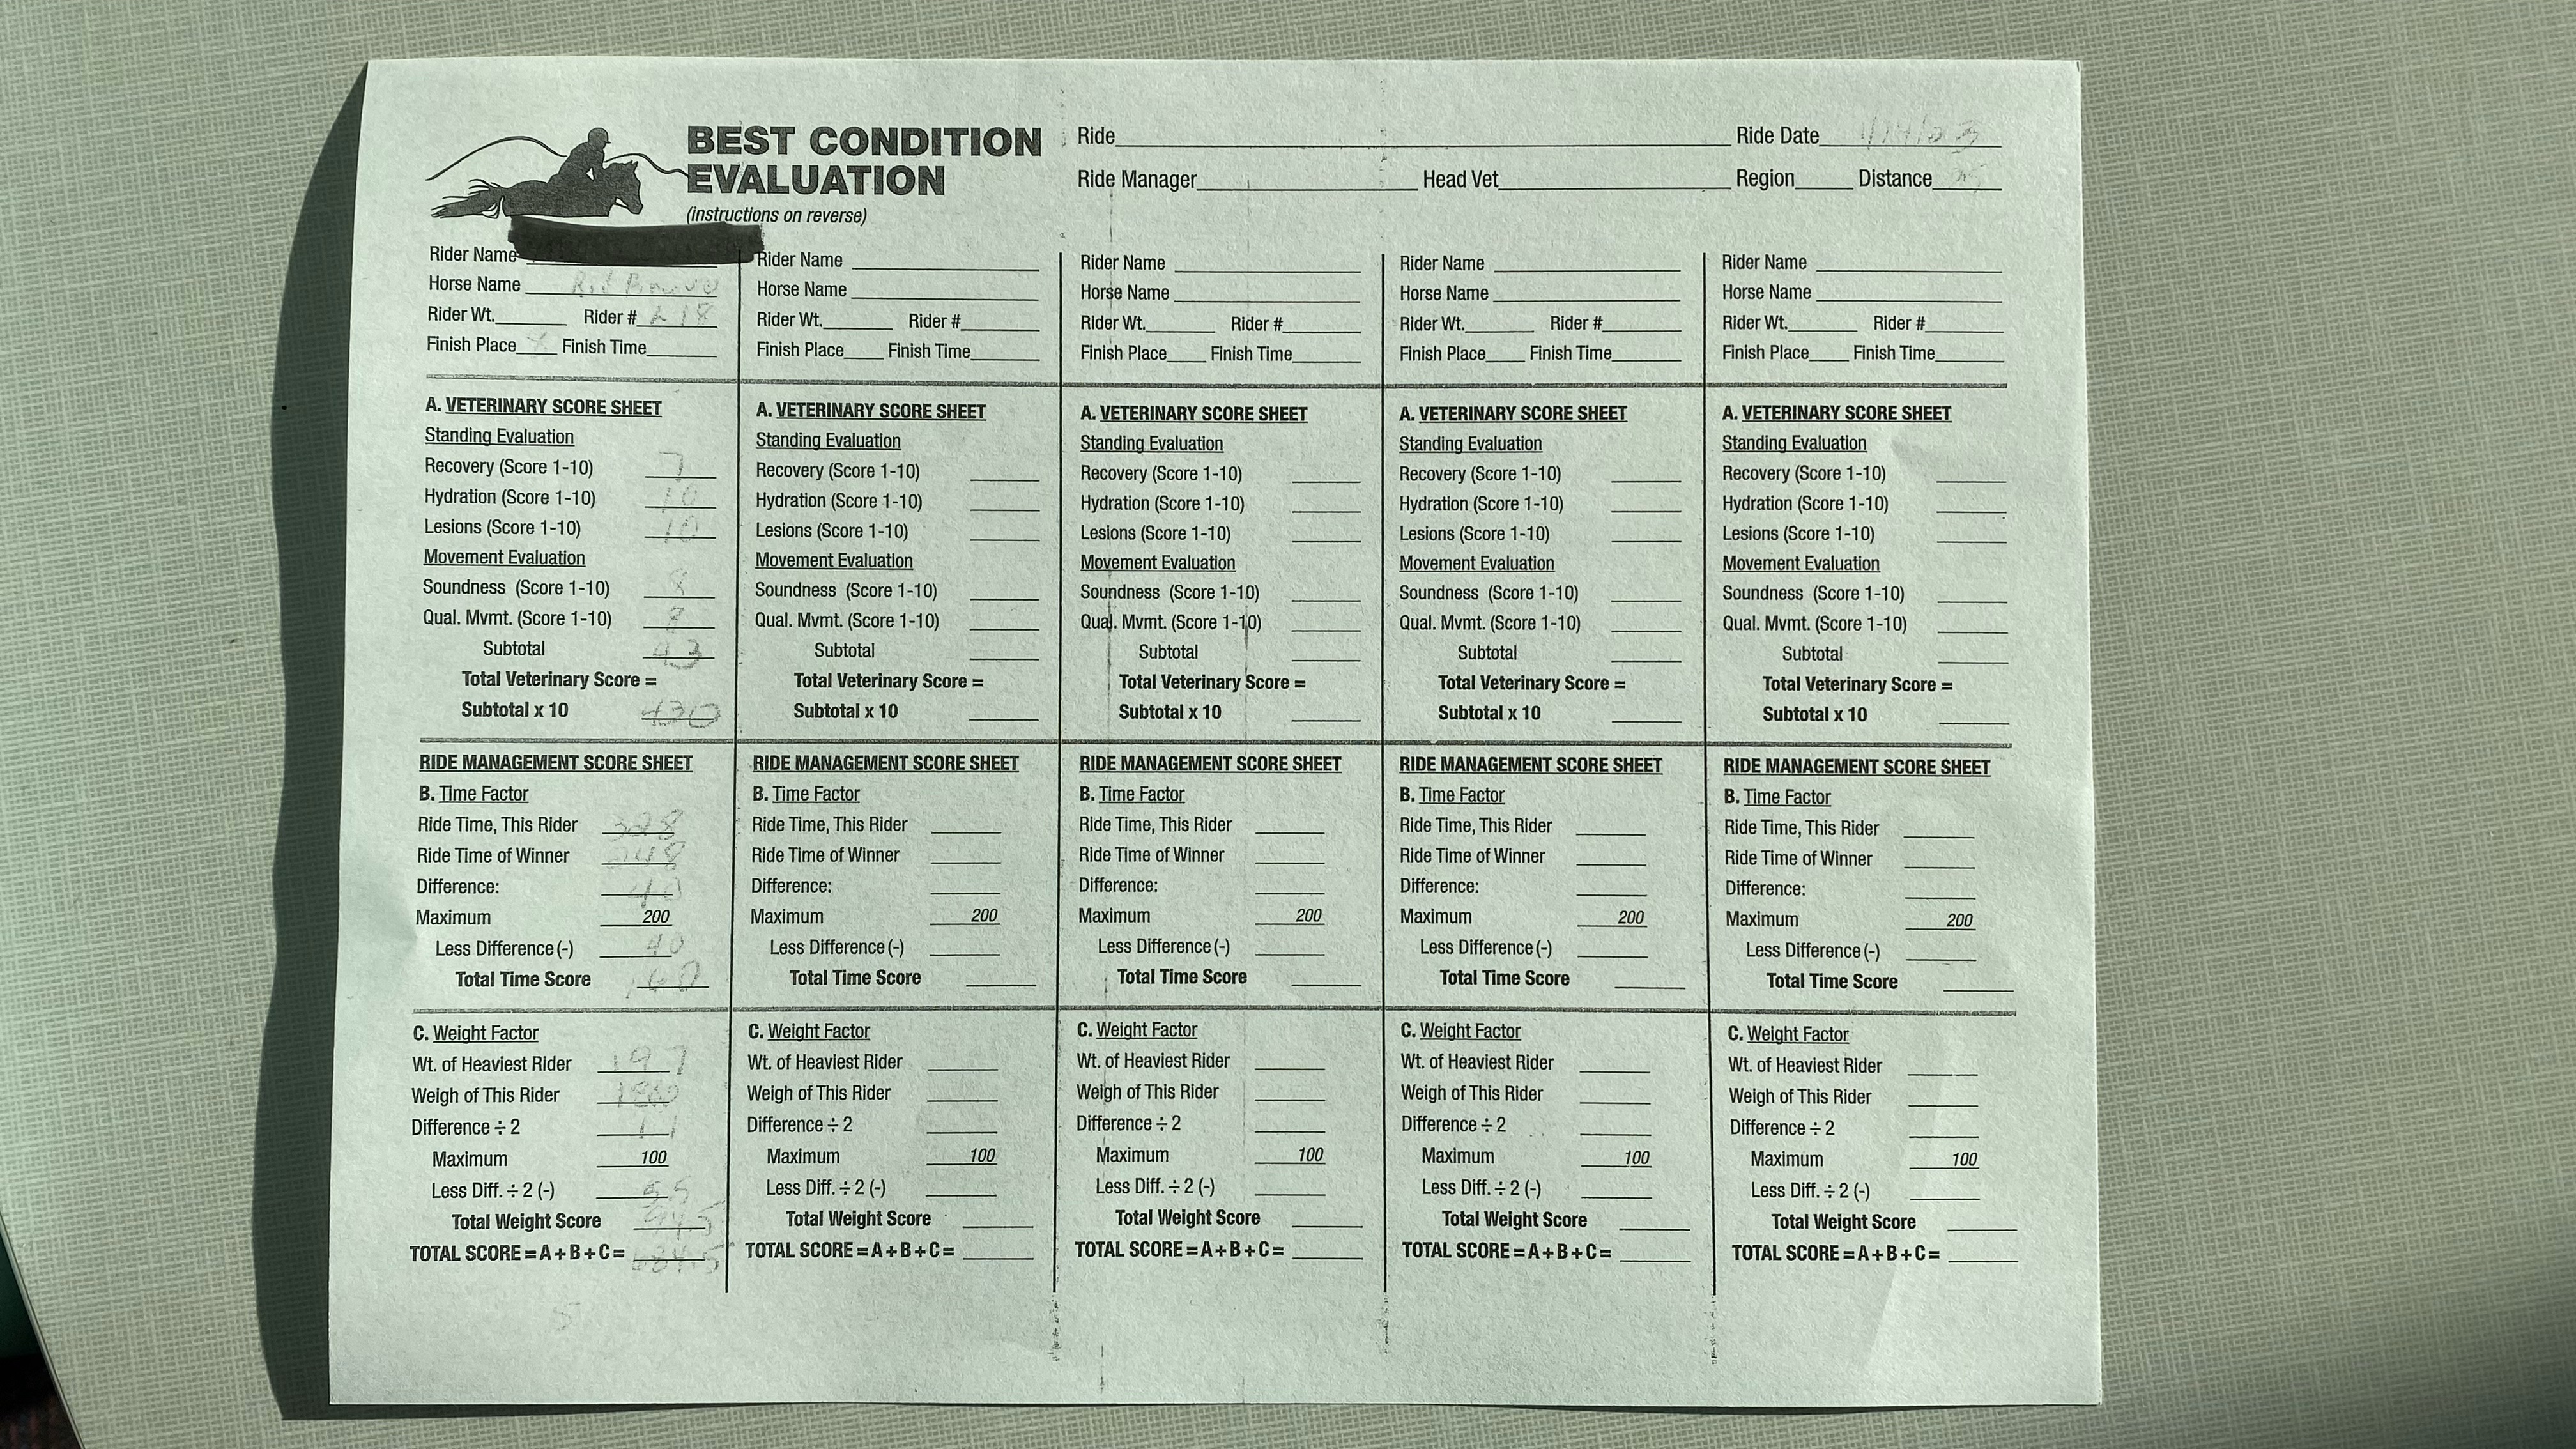 BEST CONDITION
EVALUATION
(instructions on reverse)
Ride
Ride Date 1/14/03
Ride Manager Head Vet Region Distance
Rider Name
Horse Name Red
Rider Wt. Rider # 218
Finish Place Finish Time
A. VETERINARY SCORE SHEET
Standing Evaluation
Recovery (Score 1-10) 7
Hydration (Score 1-10) 10
Lesions (Score 1-10) 10
Movement Evaluation
Soundness (Score 1-10) 8
Qual. Mvmt. (Score 1-10) 8
Subtotal 43
Total Veterinary Score =
Subtotal x 10 430
RIDE MANAGEMENT SCORE SHEET
B. Time Factor
Ride Time, This Rider
Ride Time of Winner
Difference: 40
Maximum 200
Less Difference (-) 40
Total Time Score 160
C. Weight Factor
Wt. of Heaviest Rider 197
Weigh of This Rider
Difference ÷ 2 11
Maximum 100
Less Diff. ÷ 2 (-) 5.5
Total Weight Score 94.5
TOTAL SCORE = A + B + C = 684.5
5
Rider Name
Horse Name
Rider Wt. Rider #
Finish Place Finish Time
A. VETERINARY SCORE SHEET
Standing Evaluation
Recovery (Score 1-10)
Hydration (Score 1-10)
Lesions (Score 1-10)
Movement Evaluation
Soundness (Score 1-10)
Qual. Mvmt. (Score 1-10)
Subtotal
Total Veterinary Score =
Subtotal x 10
RIDE MANAGEMENT SCORE SHEET
B. Time Factor
Ride Time, This Rider
Ride Time of Winner
Difference:
Maximum 200
Less Difference (-)
Total Time Score
C. Weight Factor
Wt. of Heaviest Rider
Weigh of This Rider
Difference ÷ 2
Maximum 100
Less Diff. ÷ 2 (-)
Total Weight Score
TOTAL SCORE = A + B + C =
Rider Name
Horse Name
Rider Wt. Rider #
Finish Place Finish Time
A. VETERINARY SCORE SHEET
Standing Evaluation
Recovery (Score 1-10)
Hydration (Score 1-10)
Lesions (Score 1-10)
Movement Evaluation
Soundness (Score 1-10)
Qual. Mvmt. (Score 1-10)
Subtotal
Total Veterinary Score =
Subtotal x 10
RIDE MANAGEMENT SCORE SHEET
B. Time Factor
Ride Time, This Rider
Ride Time of Winner
Difference:
Maximum 200
Less Difference (-)
Total Time Score
C. Weight Factor
Wt. of Heaviest Rider
Weigh of This Rider
Difference ÷ 2
Maximum 100
Less Diff. ÷ 2 (-)
Total Weight Score
TOTAL SCORE = A + B + C =
Rider Name
Horse Name
Rider Wt. Rider #
Finish Place Finish Time
A. VETERINARY SCORE SHEET
Standing Evaluation
Recovery (Score 1-10)
Hydration (Score 1-10)
Lesions (Score 1-10)
Movement Evaluation
Soundness (Score 1-10)
Qual. Mvmt. (Score 1-10)
Subtotal
Total Veterinary Score =
Subtotal x 10
RIDE MANAGEMENT SCORE SHEET
B. Time Factor
Ride Time, This Rider
Ride Time of Winner
Difference:
Maximum 200
Less Difference (-)
Total Time Score
C. Weight Factor
Wt. of Heaviest Rider
Weigh of This Rider
Difference ÷ 2
Maximum 100
Less Diff. ÷ 2 (-)
Total Weight Score
TOTAL SCORE = A + B + C =
Rider Name
Horse Name
Rider Wt. Rider #
Finish Place Finish Time
A. VETERINARY SCORE SHEET
Standing Evaluation
Recovery (Score 1-10)
Hydration (Score 1-10)
Lesions (Score 1-10)
Movement Evaluation
Soundness (Score 1-10)
Qual. Mvmt. (Score 1-10)
Subtotal
Total Veterinary Score =
Subtotal x 10
RIDE MANAGEMENT SCORE SHEET
B. Time Factor
Ride Time, This Rider
Ride Time of Winner
Difference:
Maximum 200
Less Difference (-)
Total Time Score
C. Weight Factor
Wt. of Heaviest Rider
Weigh of This Rider
Difference ÷ 2
Maximum 100
Less Diff. ÷ 2 (-)
Total Weight Score
TOTAL SCORE = A + B + C =